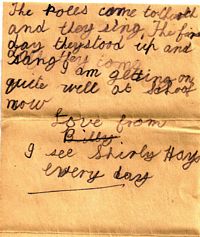 The Poles come to church
and they sing. The first
day they stood up and
sang they come
I am getting on
quite well at School
now
Love from
Billy
I see Shirly Hays
every day